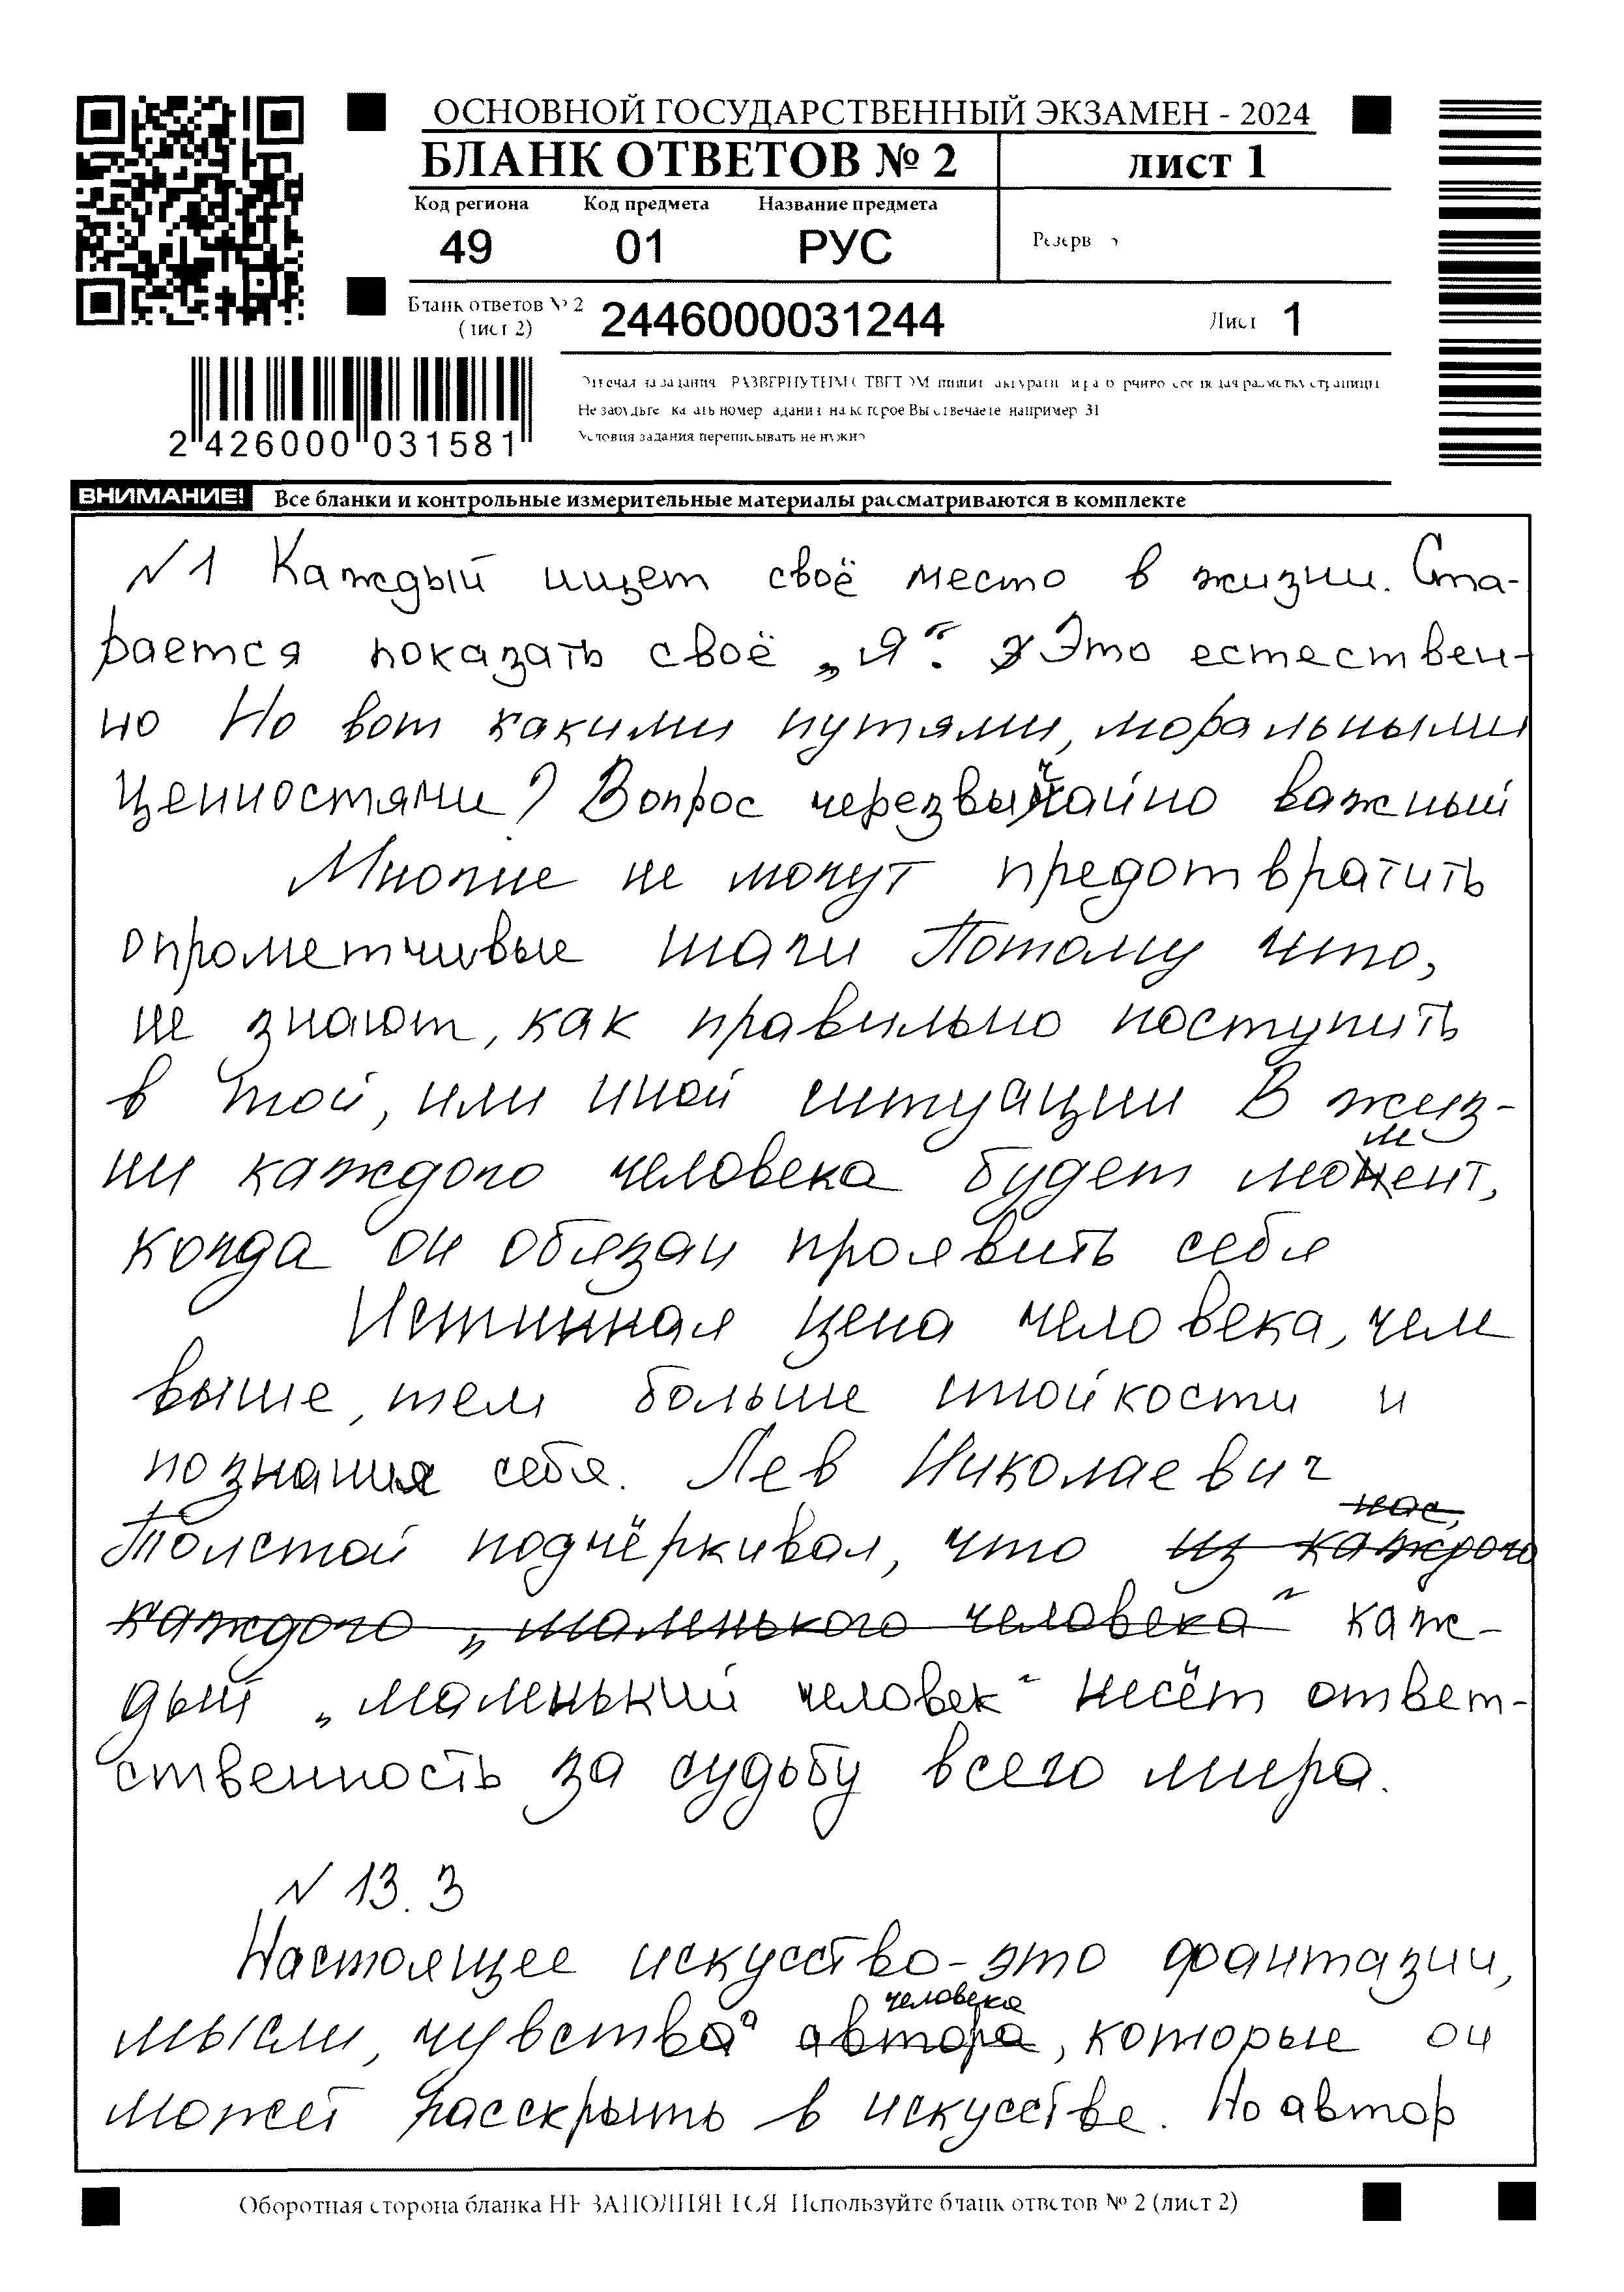 ОСНОВНОЙ ГОСУДАРСТВЕННЫЙ ЭКЗАМЕН - 2024
БЛАНК ОТВЕТОВ № 2
лист 1
Код региона Код предмета Название предмета
49 01 РУС
Резерв
Бланк ответов № 2
(лист 2)
2446000031244
Лист 1
2 426000 031581
Не забудьте указать номер задания на которое Вы отвечаете например 31
Условия задания переписывать не нужно
ВНИМАНИЕ! Все бланки и контрольные измерительные материалы рассматриваются в комплекте
№1 Каждый ищет своё место в жизни. Ста-
рается показать своё „Я“. Это естествен-
но Но вот какими путями, моральными
ценностями? Вопрос черезвычайно важный
Многие не могут предотвратить
опрометчивые шаги Потому что,
не знают, как правильно поступить
в той, или иной ситуации В жиз-
ни каждого человека будет момент,
когда он обязан проявить себя
Истинная цена человека, чем
выше, тем больше стойкости и
познания себя. Лев Николаевич
Толстой подчёркивал, что из каждого нас,
каждого „маленького человека“ каж-
дый „маленький человек“ несёт ответ-
ственность за судьбу всего мира.
№ 13.3
Настоящее искусство-это фантазии,
мысли, чувства автора человека, которые он
может расскрыть в искусстве. Но автор
Оборотная сторона бланка НЕ ЗАПОЛНЯЕТСЯ Используйте бланк ответов № 2 (лист 2)